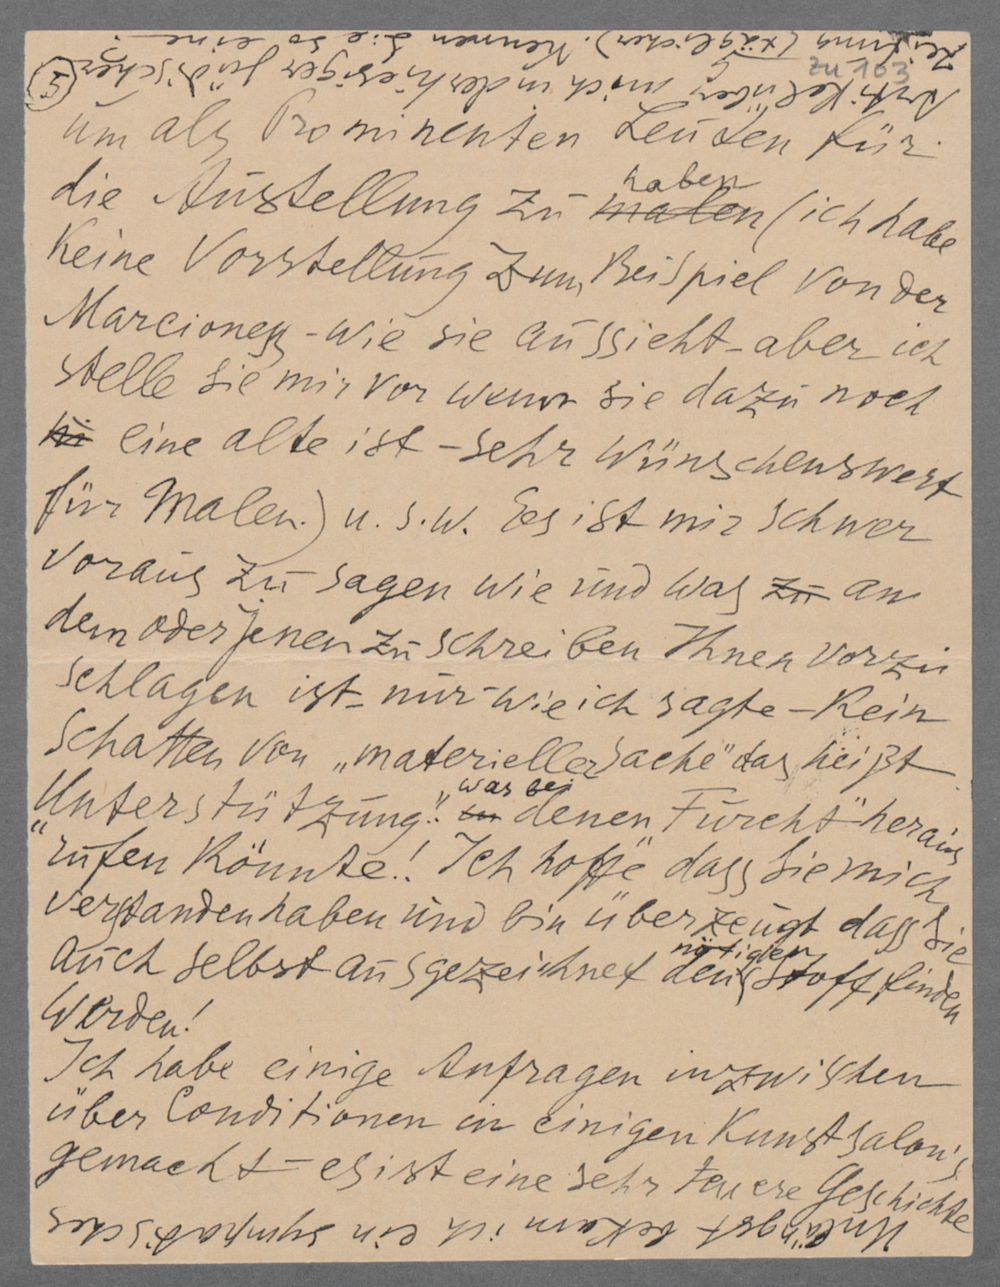 zu 103
5
um als Prominenten Leuten für
die Austellung zu malen haben (ich habe
keine Vorstellung zum Beispiel von der
Marcioness - wie sie aussieht - aber ich
stelle sie mir vor wenn sie dazu noch
eine alte ist - sehr wünschenswert
für Malen.) u.s.w. Ees ist mir schwer
voraus zu sagen wie und was zu an
dem oder jenen zu schreiben Ihnen vorzu
schlagen ist - nur wie ich sagte - Kein
Schatten von „materieller Sache" das heißt
Unterstützung"! was bei denen „Furcht" heraus
rufen könnte! Ich hoffe dass Sie mich
verstanden haben und bin überzeugt dass Sie
auch selbst ausgezeichnet den nötigten Stoff finden
werden!
Ich habe einige Anfragen inzwischen
über Conditionen in einigen Kunstsalon's
gemacht - es ist eine sehr teuere Geschichte
Unlängst bekam ich ein sympatisches
Artikel über mich in der hiesiger jüdischer
Zeitung (täglicher). Kennen Sie so eine -